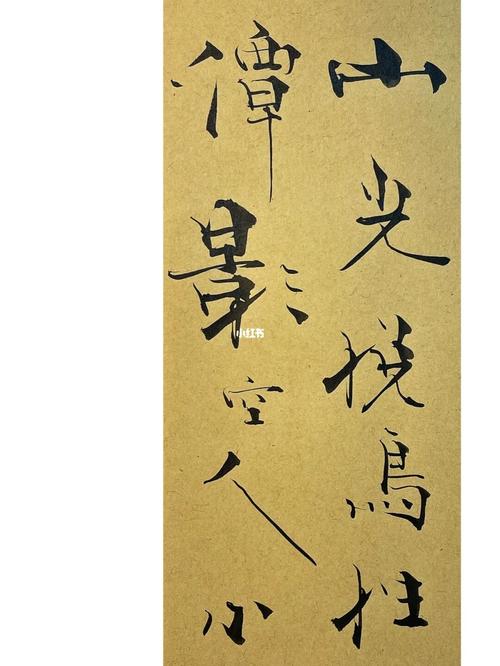 山光悦鸟性
潭影空人心
小红书